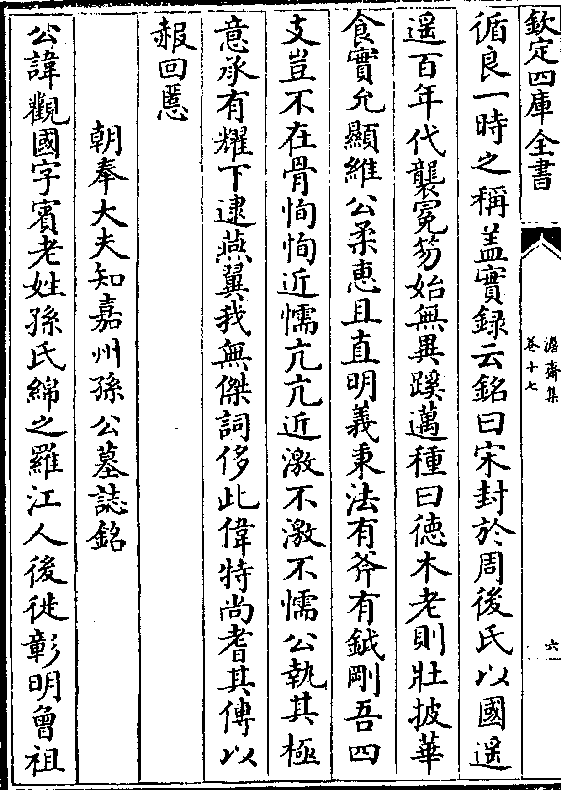 欽定四庫全書
澹齋集
卷十七
六
循良一時之稱盖實録云銘曰宋封於周後氏以國遥
遥百年代襲冕笏始無異蹊邁種曰徳木老則壯披華
食實允顯維公柔恵且直明義秉法有斧有鉞剛吾四
支豈不在骨恂恂近懦亢亢近激不激不懦公執其極
意承有耀下逮燕翼我無傑詞侈此偉特尚耆其傳以
赧回慝
朝奉大夫知嘉州孫公墓誌銘
公諱觀國字賓老姓孫氏綿之羅江人後徙彰明曾祖